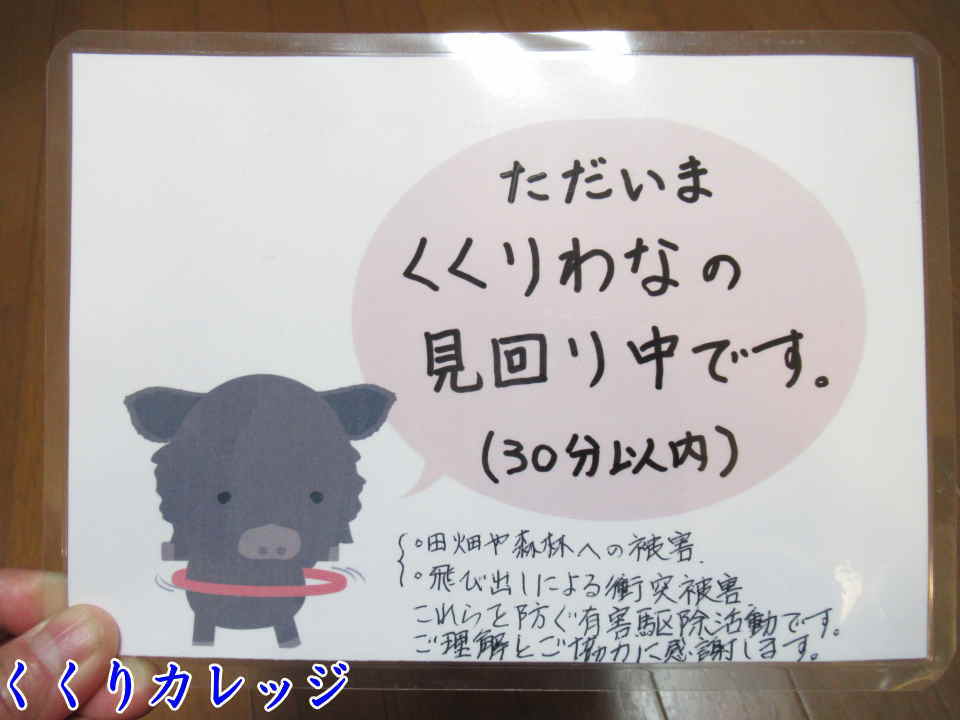 ただいま
くくりわなの
見回り中です。
(30分以内)
{○田畑や森林への被害.
○飛び出しによる衝突被害
これらを防ぐ有害駆除活動です。
ご理解とご協力に感謝します。
くくりカレッジ